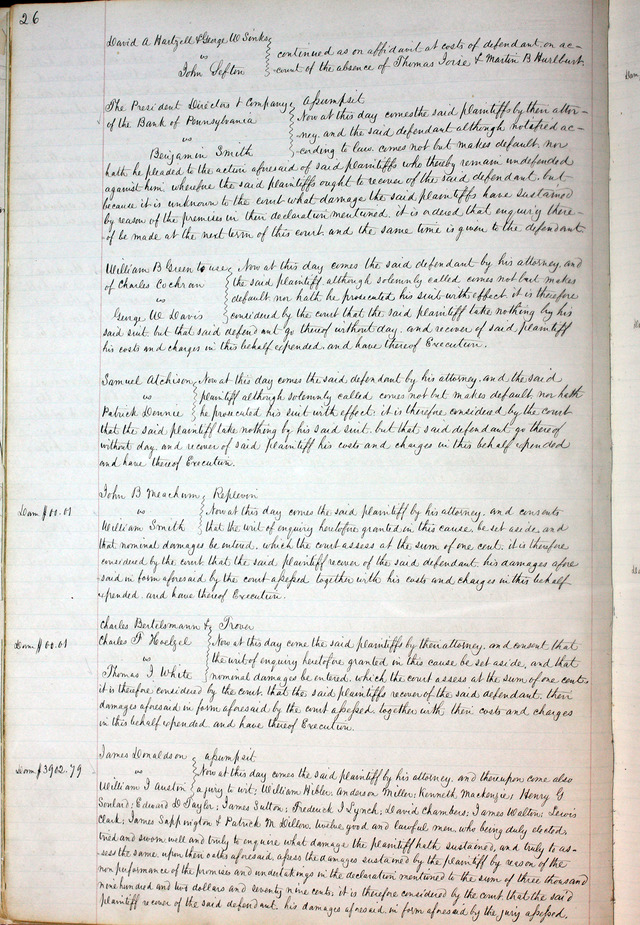 26
David A Hartzell & George W Sinks
vs
John Sefton
continued as on affidavit at costs of defendant on ac-
count of the absence of Thomas & Martin B Hurlburt
The President Directors & Company
of the Bank of Pennsylvania
vs
Benjamin Smith
assumpsit
Now at this day comes the said plaintiffs by their attor-
ney, and the said defendant although notified ac-
cording to law, comes not but makes default, nor
hath he pleaded to the action aforesaid of said plaintiffs who thereby remain undefended
against him wherefore the said plaintiffs ought to recover of the said defendant. but
because it is unknown to the court what damage the said plaintiffs have sustained
by reason of the premises in their declaration mentioned, it is ordered that enquiry there-
of be made at the next term of this court, and the same time is given to the defendant
William B Green to use
of Charles Cochran
vs
George W Davis
Now at this day comes the said defendant by his attorney, and
the said plaintiff although solemnly called comes not but makes
default, nor hath he prosecuted his suit with effect, it is therefore
considered by the court that the said plaintiff take nothing by his
said suit but that said defendant go thereof without day, and recover of said plaintiff
his costs and charges in this behalf expended, and have thereof Execution.
Samuel Atchison
vs
Patrick Dennie
Now at this day comes the said defendant by his attorney, and the said
plaintiff although solemnly called comes not but makes default, nor hath
he prosecuted his suit with effect; it is therefore considered by the court
that the said plaintiff take nothing by his said suit, but that said defendant go thereof
without day, and recover of said plaintiff his costs and charges in this behalf expended
and have thereof Execution.
Dam $00.01
John B Meachum
vs
William Smith
Replevin
Now at this day comes the said plaintiff by his attorney, and consents
that the writ of enquiry heretofore granted in this cause, be set aside, and
that nominal damages be entered, which the court assess at the sum of one cent, it is therefore
considered by the court, that the said plaintiff recover of the said defendant, his damages afore
said in form aforesaid by the court assessed together with his costs and charges in this behalf
expended, and have thereof Execution.
Dam $00.01
Charles Bertelsmann &
Charles F Hoelzel
vs
Thomas J White
Trover
Now at this day come the said plaintiffs by their attorney, and consent that
the writ of enquiry heretofore granted in this cause be set aside, and that
nominal damages be entered, which the court assess at the sum of one cent,
it is therefore considered by the court, that the said plaintiffs recover of the said defendant, their
damages aforesaid in form aforesaid by the court assessed, together with their costs and charges
in this behalf expended, and have thereof Execution.
Dam $3902.79
James Donaldson
vs
William J Austin
assumpsit
Now at this day comes the said plaintiff by his attorney, and thereupon come also
a jury to wit; William Hibler, Anderson Miller; Kenneth Mackenzie; Henry G
Soulard; Edward D Taylor; James Sutton; Frederick J Lynch; David Chambers; James Walton; Lewis
Clark; James Sappington & Patrick M Dillon, twelve good and lawful men, who being duly elected,
tried and sworn well and truly to enquire what damage the plaintiff hath sustained, and truly to as-
sess the same, upon their oaths aforesaid, assess the damages sustained by the plaintiff by reason of the
non performance of the promises and undertakings in the declaration mentioned to the sum of three thousand
nine hundred and two dollars and seventy nine cents, it is therefore considered by the court, that the said
plaintiff recover of the said defendant, his damages aforesaid, in form aforesaid by the jury assessed,